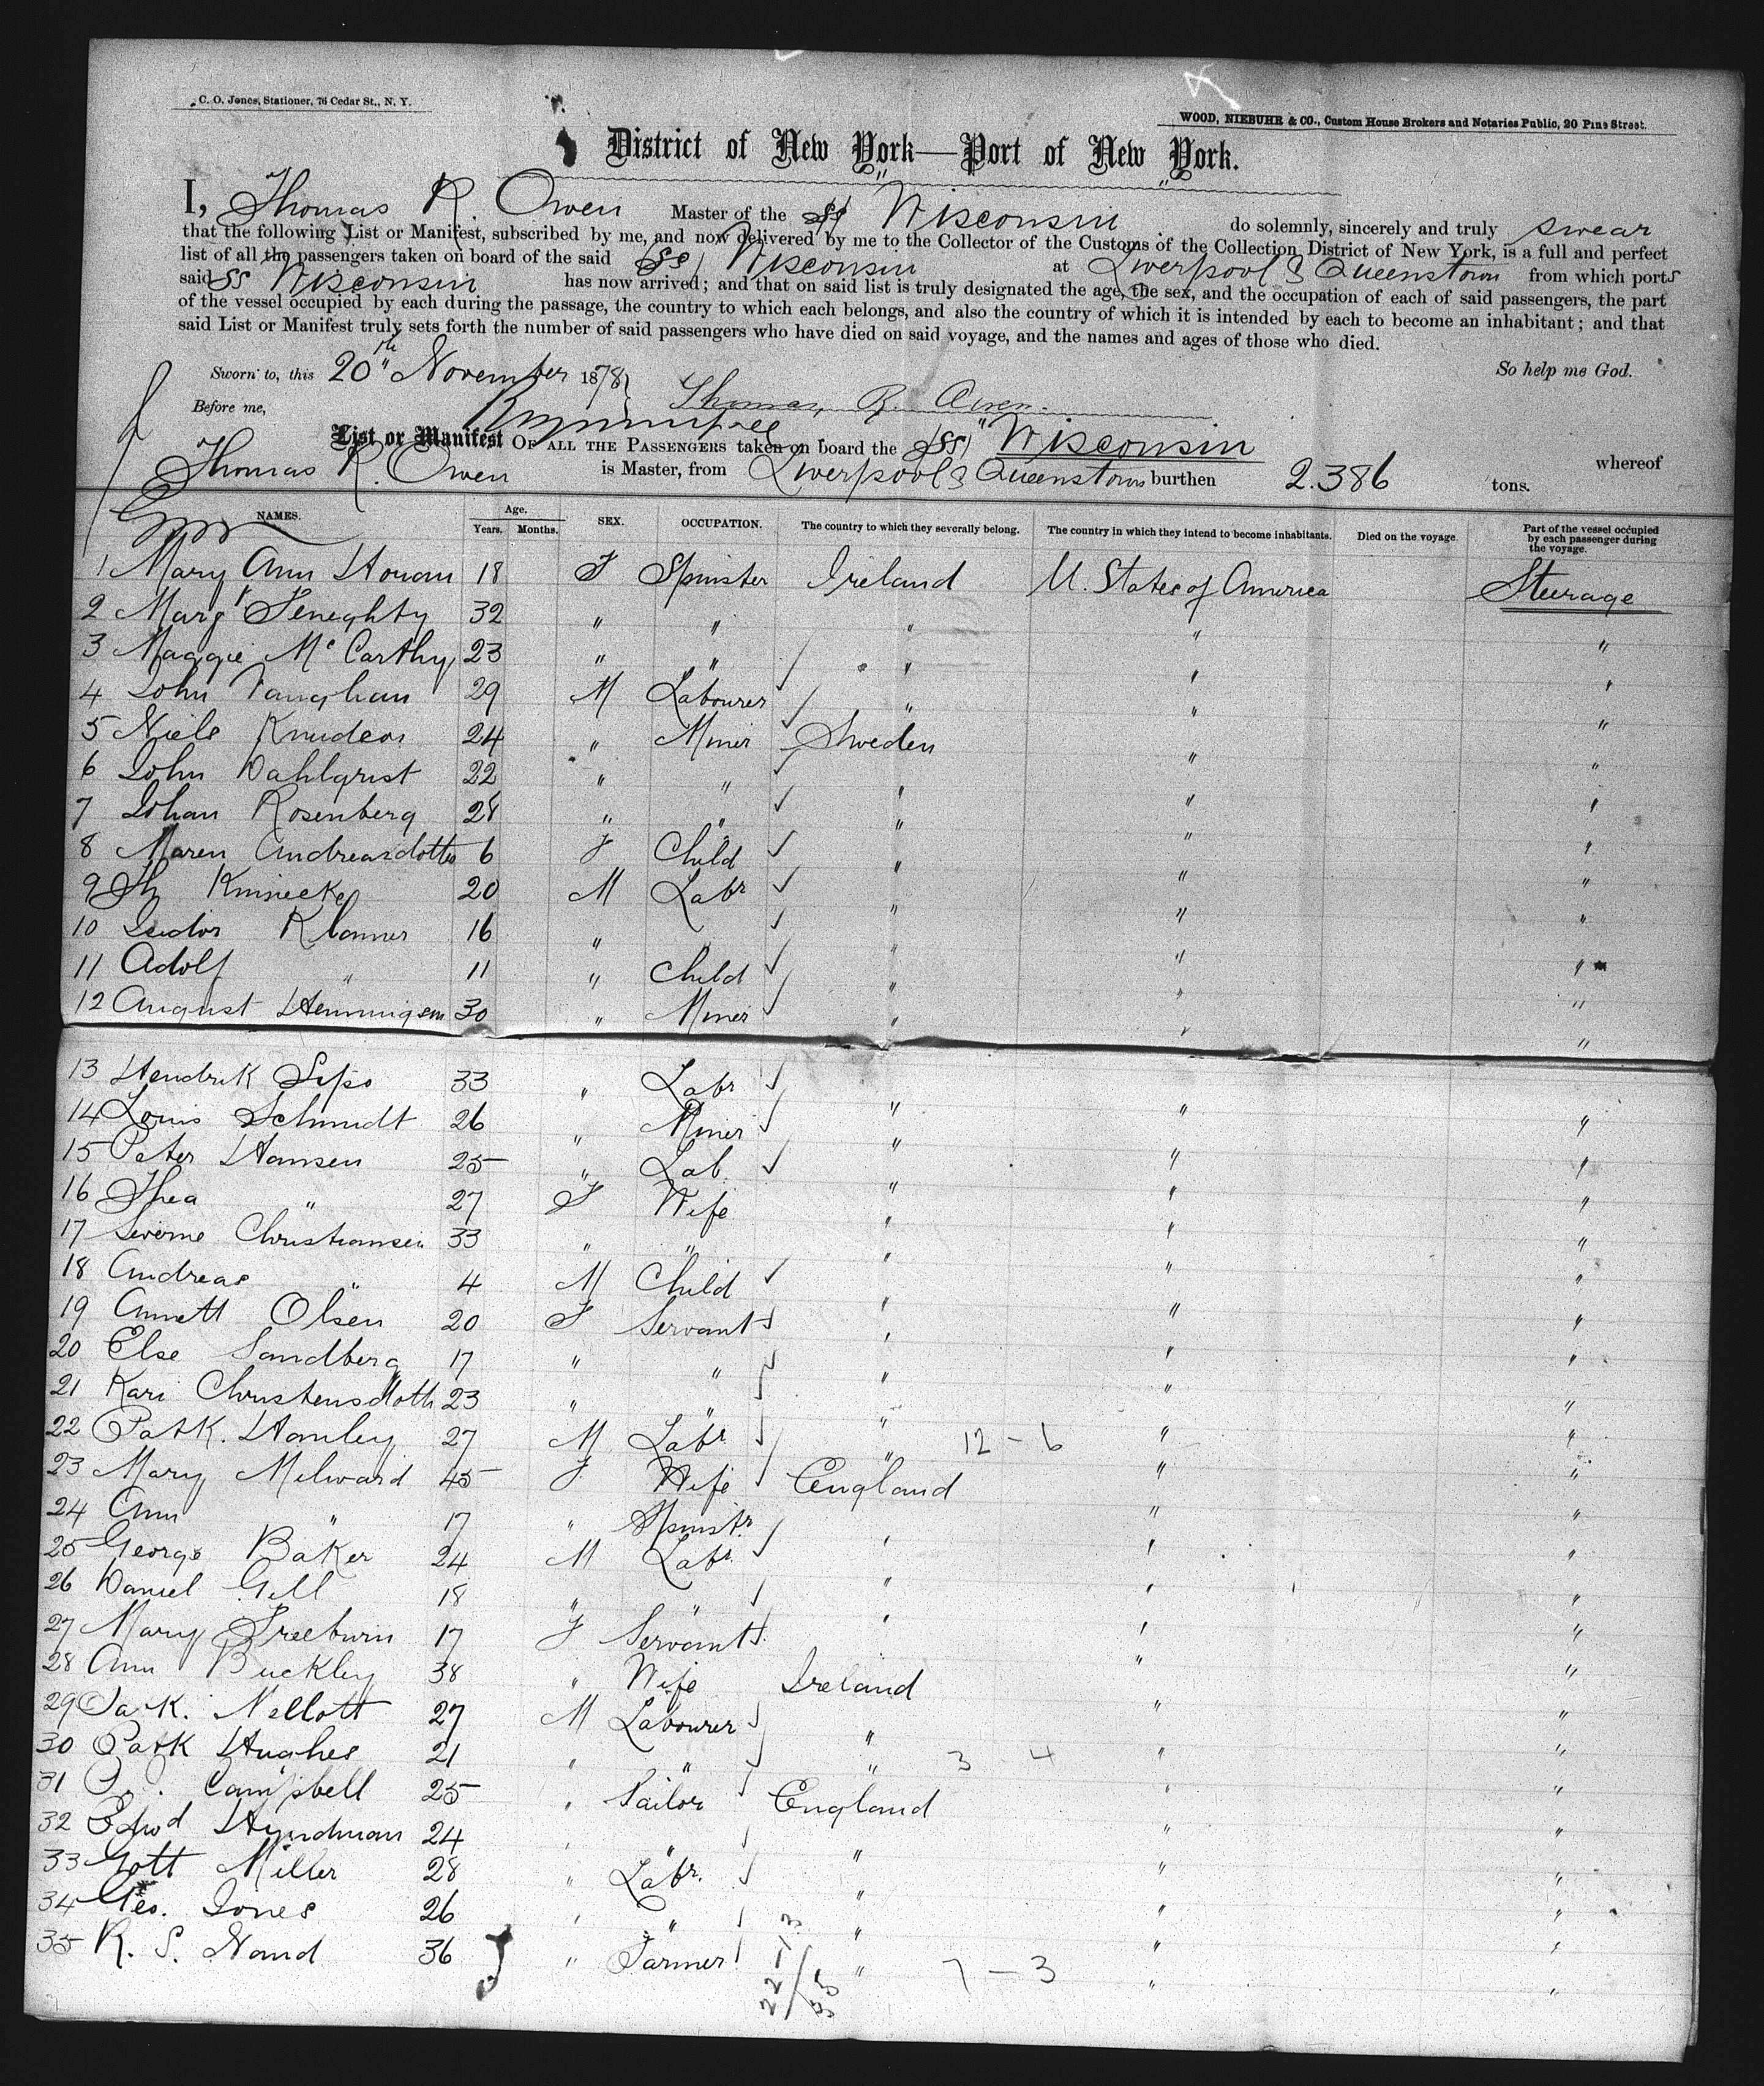 C. O. Jones, Stationer, 76 Cedar St., N. Y.
WOOD, NIEBUHR & CO., Custom House Brokers and Notaries Public, 20 Pine Street.
District of New York—Port of New York.
I, Thomas R. Owen Master of the SS Wisconsin do solemnly, sincerely and truly swear
that the following List or Manifest, subscribed by me, and now delivered by me to the Collector of the Customs of the Collection District of New York, is a full and perfect
list of all the passengers taken on board of the said SS Wisconsin at Liverpool & Queenstown from which ports
said SS Wisconsin has now arrived; and that on said list is truly designated the age, the sex, and the occupation of each of said passengers, the part
of the vessel occupied by each during the passage, the country to which each belongs, and also the country of which it is intended by each to become an inhabitant; and that
said List or Manifest truly sets forth the number of said passengers who have died on said voyage, and the names and ages of those who died.
Sworn to, this 20th November 1878 So help me God.
Before me, Thomas R. Owen
List or Manifest OF ALL THE PASSENGERS taken on board the (SS) "Wisconsin whereof
Thomas R. Owen is Master, from Liverpool & Queenstown burthen 2.386 tons.
NAMES. Age. Years. Months. SEX. OCCUPATION. The country to which they severally belong. The country in which they intend to become inhabitants. Died on the voyage Part of the vessel occupied by each passenger during the voyage.
1 Mary Ann Honan 18 F Spinster Ireland U. States of America Steerage
2 Margt 32 " " " " "
3 Maggie McCarthy 23 " " " " "
4 John Vaughan 29 M Labourer " " "
5 Niels Knudson 24 " Miner Sweden " "
6 John Dahlqrist 22 " " " " "
7 Johan Rosenberg 28 " " " " "
8 Maren Andreasdotter 6 F Child " " "
9 20 M Labr " " "
10 Isidor 16 " " " " "
11 Adolf " 11 " Child " " "
12 August Hemmigsen 30 " Miner " " "
13 Hendrik 33 " Labr " " "
14 Louis Schmidt 26 " Miner " " "
15 Peter Hansen 25 " Lab " " "
16 Thea " 27 F Wife " " "
17 Christiansen 33 " " " " "
18 Andreas " 4 M Child " " "
19 Annett Olsen 20 F Servant " " "
20 Else Sandberg 17 " " " " "
21 Kari Christensdoth 23 " " " " "
22 Patk. Hanley 27 M Labr " 12 - 6 " "
23 Mary Milward 45 F Wife England " "
24 Ann " 17 " Spinstr " " "
25 George Baker 24 M Labr " " "
26 Daniel Gill 18 " " " " "
27 Mary Freeburn 17 F Servant " " "
28 Ann Buckley 38 " Wife Ireland " "
29 Patk. Nellott 27 M Labourer " " "
30 Patk Hughes 21 " " " 3 4 " "
31 Campbell 25 " Sailor England " "
32 Edwd Hyndman 24 " " " " "
33 Gott Miller 28 " Labr. " " "
34 Geo. Jones 26 " " " " "
35 R. S. Hand 36 " Farmer " 7 - 3 " "
22-13
35